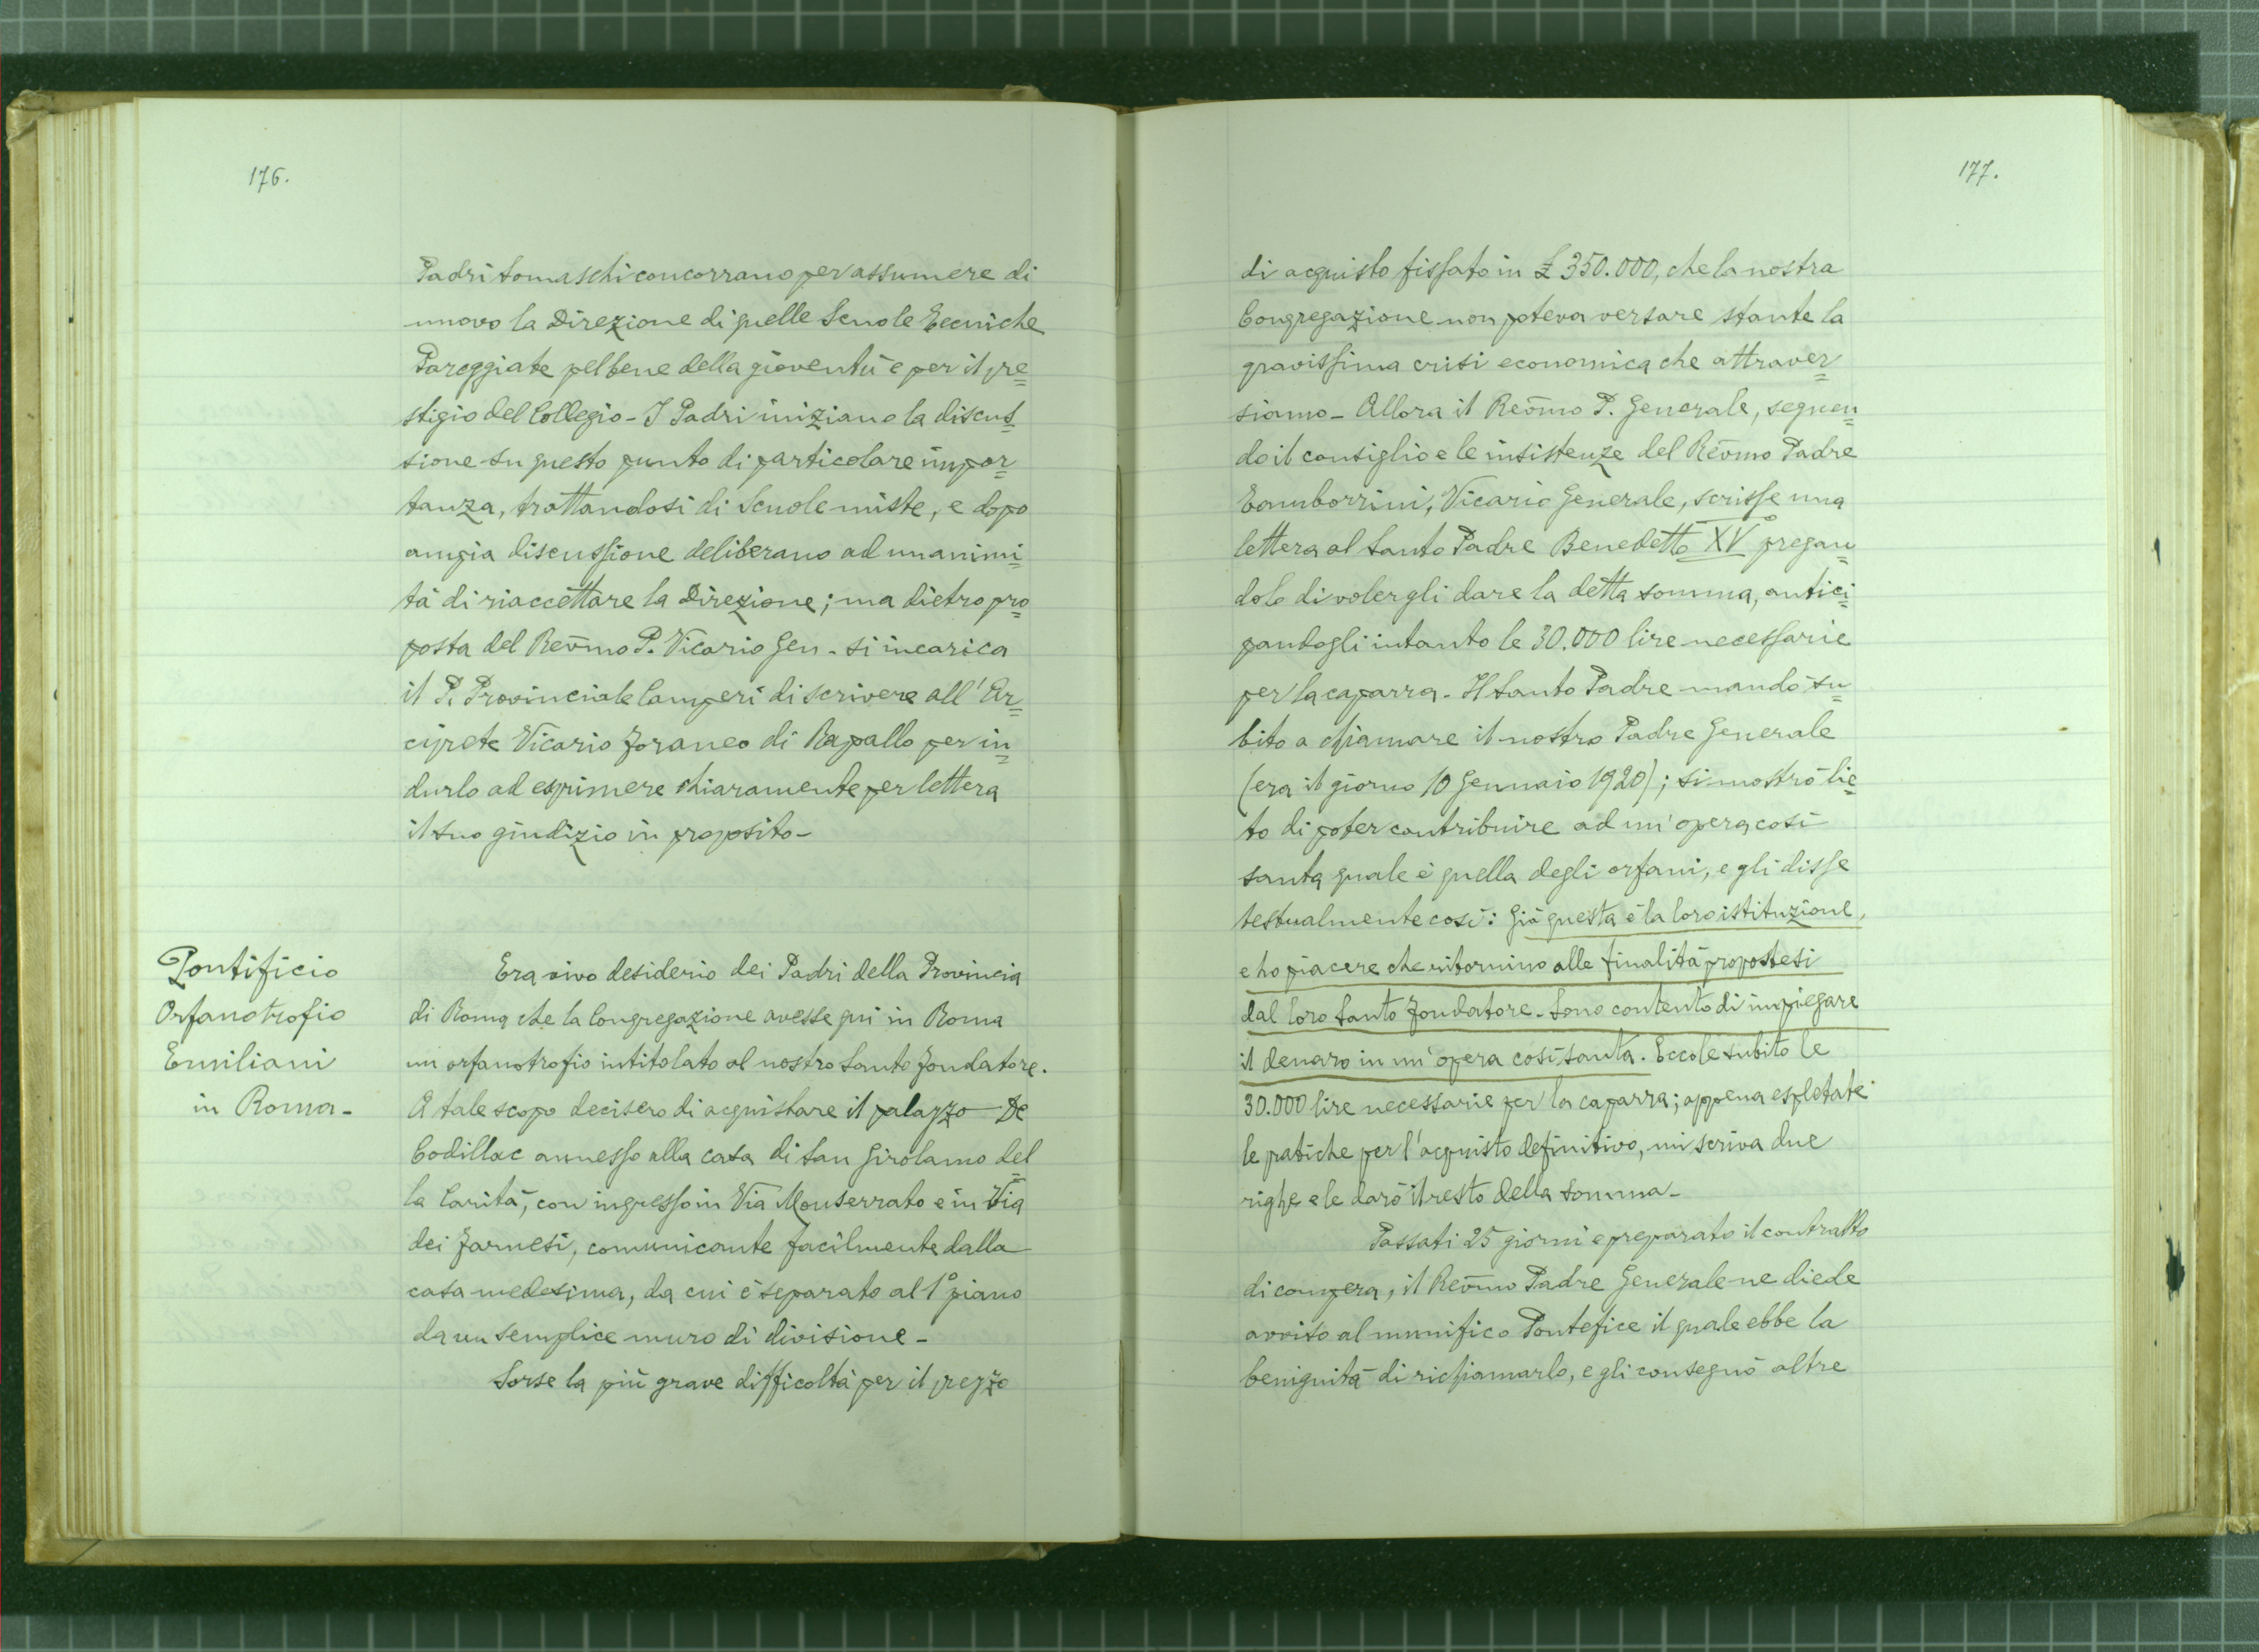 176.
Padri Somaschi concorrano per assumere di
nuovo la Direzione di quelle Scuole Tecniche
Pareggiate pel bene della gioventù e per il pre=
stigio del Collegio - I Padri iniziano la discus=
sione su questo punto di particolare impor=
tanza, trattandosi di Scuole miste, e dopo
ampia discussione deliberano ad unanimi=
tà di riaccettare la Direzione; ma dietro pro=
posta del Rev̄mo P. Vicario Gen. si incarica
il P. Provinciale Camperi di scrivere all'Ar=
ciprete Vicario Foraneo di Rapallo per in=
durlo ad esprimere chiaramente per lettera
il suo giudizio in proposito -
Pontificio
Orfanotrofio
Emiliani
in Roma -
Era vivo desiderio dei Padri della Provincia
di Roma che la Congregazione avesse qui in Roma
un orfanotrofio intitolato al nostro Santo Fondatore.
A tale scopo decisero di acquistare il palazzo De
Codillac annesso alla casa di San Girolamo del=
la Carità, con ingresso in Via Monserrato e in Via
dei Farnesi, comunicante facilmente dalla
casa medesima, da cui è separato al 1° piano
da un semplice muro di divisione -
Sorse la più grave difficoltà per il prezzo
177.
di acquisto fissato in £ 350.000, che la nostra
Congregazione non poteva versare stante la
gravissima crisi economica che attraver=
siamo - Allora il Rev̄mo P. Generale, seguen=
do il consiglio e le insistenze del Rev̄mo Padre
Tamborrini, Vicario Generale, scrisse una
lettera al Santo Padre Benedetto XV° pregan=
dolo di volergli dare la detta somma, antici=
pandogli intanto le 30.000 lire necessarie
per la caparra - Il Santo Padre mandò su=
bito a chiamare il nostro Padre Generale
(era il giorno 10 Gennaio 1920); si mostrò lie=
to di poter contribuire ad un'opera così
santa quale è quella degli orfani, e gli disse
testualmente così: Già questa è la loro istituzione,
e ho piacere che ritornino alle finalità propostesi
dal loro Santo Fondatore - Sono contento di impiegare
il denaro in un'opera così santa. Eccole subito le
30.000 lire necessarie per la caparra; appena espletate
le pratiche per l'acquisto definitivo, mi scriva due
righe e le darò il resto della somma -
Passati 25 giorni e preparato il contratto
di compera, il Rev̄mo Padre Generale ne diede
avviso al munifico Pontefice il quale ebbe la
benignità di richiamarlo, e gli consegnò altre